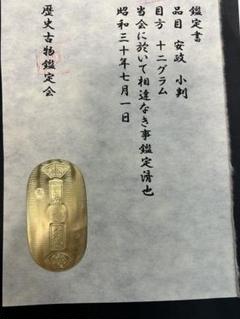 鑑定書
品目 安政 小判
目方 十二グラム
当会に於いて相違なき事鑑定済也
昭和三十年七月一日
歴史古物鑑定会